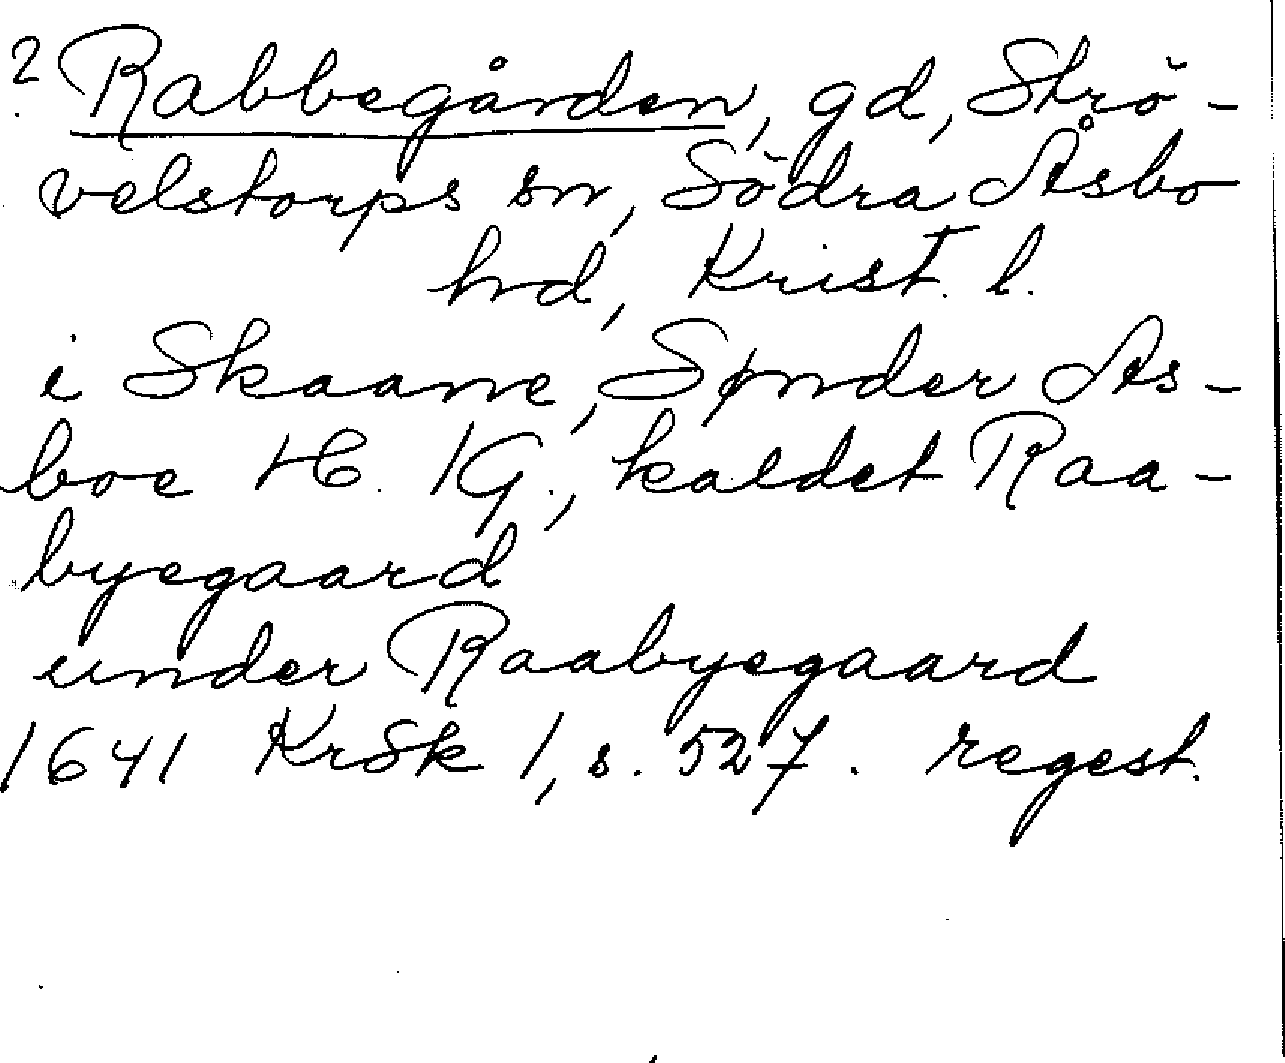 ? Rabbegården, gd, Strö-
velstorps sn, Södra Åsbo
hd, Krist. l.
i Skaane, Sønder As-
boe H. 1 G., kaldet Raa-
byegaard
under Raabyegaard
1641 KrSk 1, s. 527. regest.